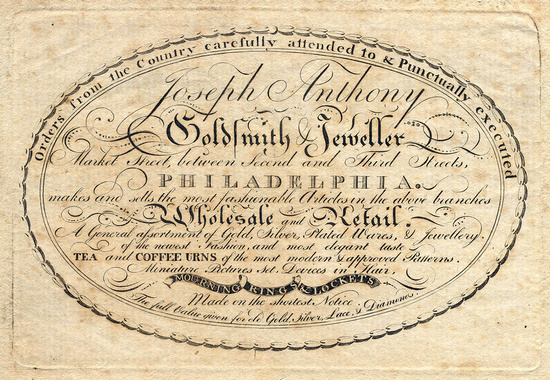 Orders from the Country carefully attended to & Punctually executed
Joseph Anthony
Goldsmith & Jeweller
Market Street, between Second and Third Streets,
PHILADELPHIA.
makes and sells the most fashionable Articles in the above branches
Wholesale and Retail
A General assortment of Gold, Silver, Plated Wares, & Jewellery,
of the newest Fashion, and most elegant taste
TEA and COFFEE URNS of the most modern & approved Patterns.
Miniature Pictures Set. Devices in Hair,
MOURNING RINGS & LOCKETS
Made on the shortest Notice
The full Value given for old Gold, Silver, Lace, & Diamonds